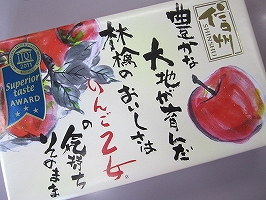 信州
豊かな
大地が育んだ
林檎のおいしさは
りんご乙女。
の気持ち
そのまま
iTQi
2011
Superior
taste
AWARD